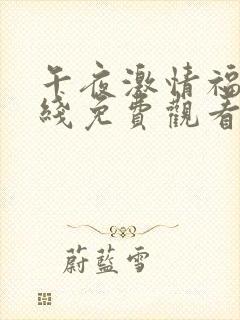 午夜激情福
綫免費觀看
蔚藍雪